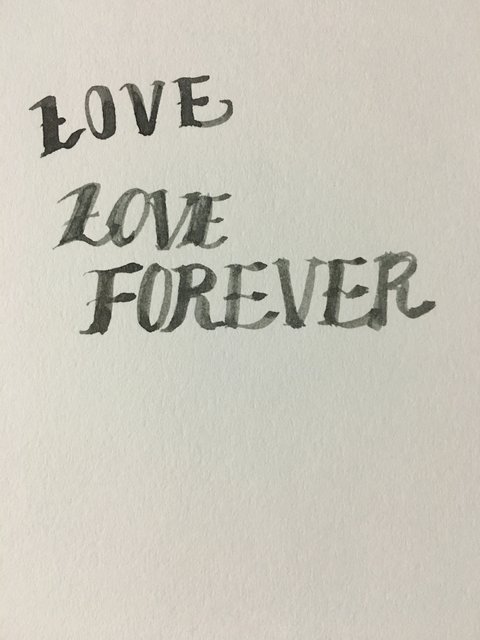 LOVE
LOVE
FOREVER